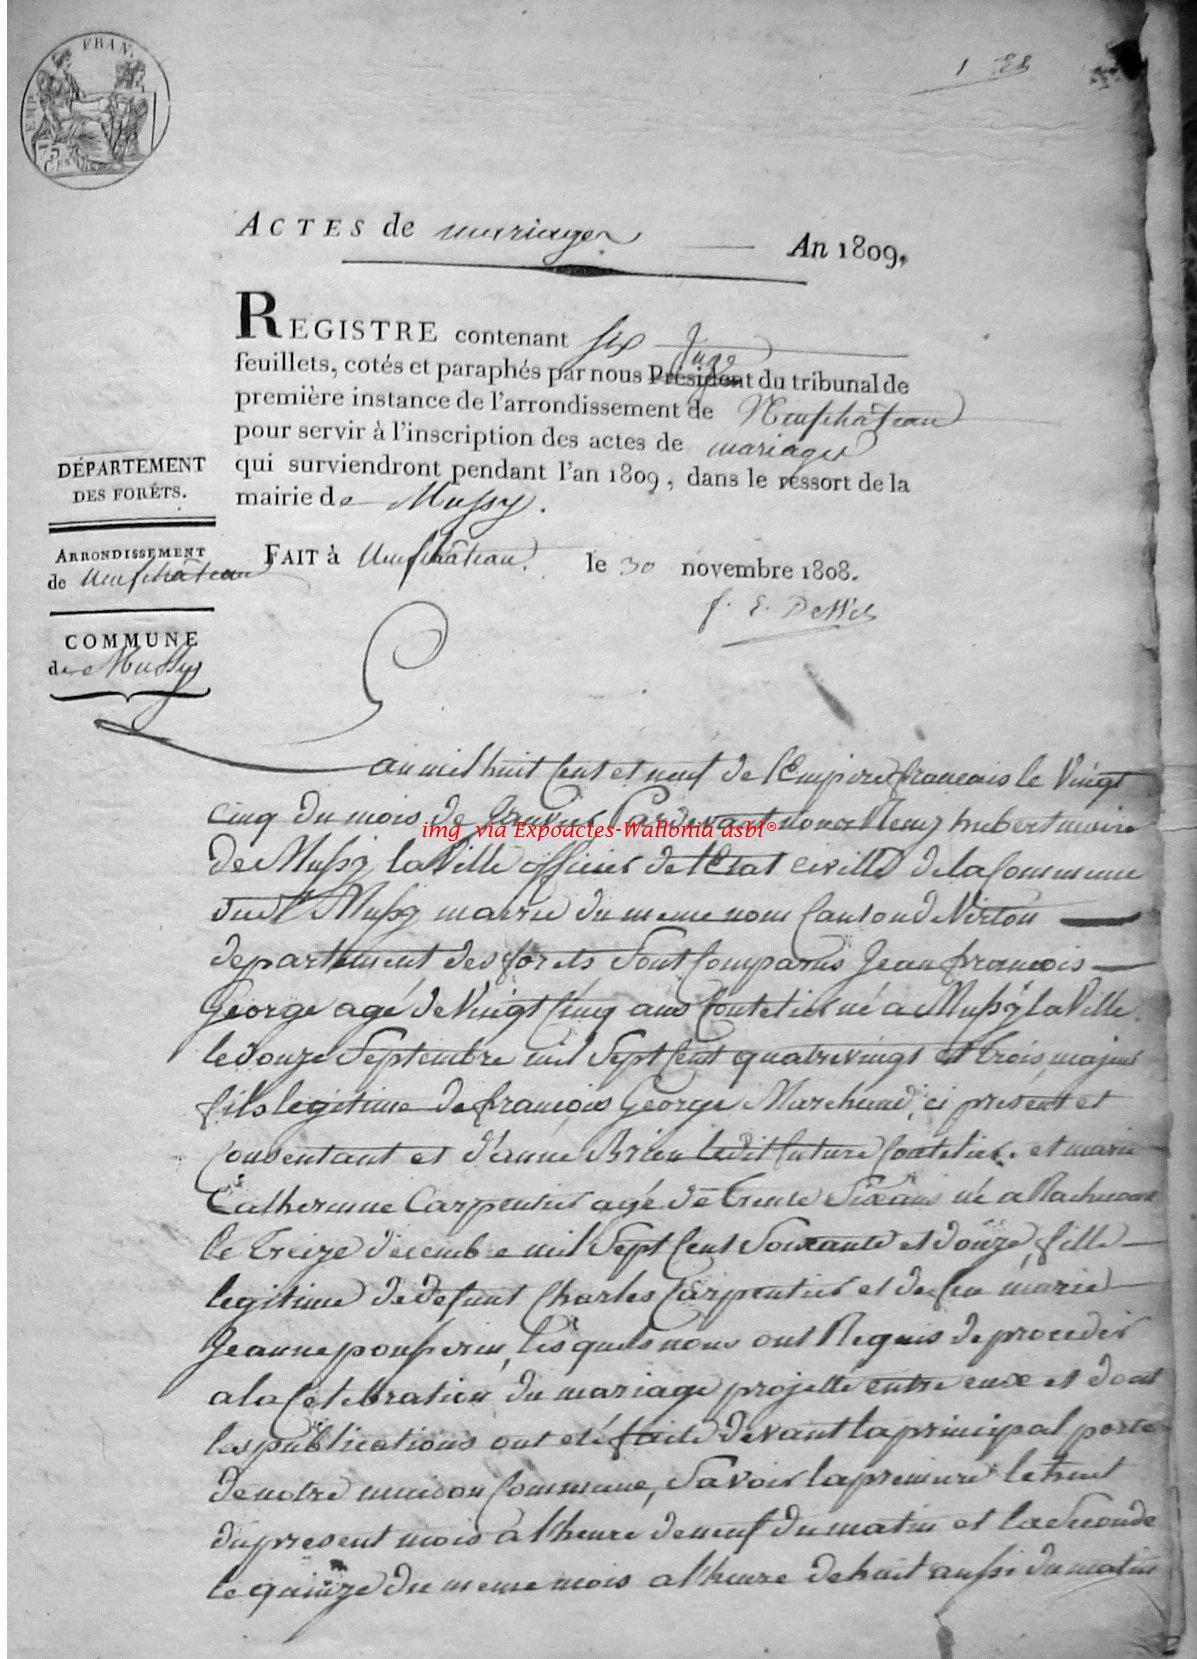 EMP. FRAN.
75
CES
ACTES de mariages An 1809.
REGISTRE contenant six
juge
feuillets, cotés et paraphés par nous Président du tribunal de
première instance de l'arrondissement de Neufchâteau
pour servir à l'inscription des actes de mariages
qui surviendront pendant l'an 1809, dans le ressort de la
mairie de Mussy.
FAIT à Neufchâteau le 30 novembre 1808.
DÉPARTEMENT
DES FORÊTS.
ARRONDISSEMENT
de Neufchâteau
COMMUNE
de Mussy
an mil huit cent et neuf de l'Empire francais le Vingt
cinq du mois de Janvier Pardevant nous Remy hubert maire
de Mussy la Ville officier de l'Etat civille de la Commune
dudt Mussy mairie du meme nom Canton de Virton
departement des forets Sont Comparus Jean françois
George agé de Vingt Cinq ans Coutelier né a Mussy la Ville
le douze Septembre mil Sept Cent quatrevingt et trois, majeur
fils legitime de françois George Marchand, ci présent et
Consentant et d'anne Brien ledit future Coutelier. et marie
Catherinne Carpentier agé de trente Six ans né a Rachecourt
le treize décembre mil Sept Cent Soixante et douze, fille
legitime de defunt Charles Carpentier et de feu marie
Jeanne ponsserin, lesquels nous ont Requis de proceder
a la Celebration du mariage projetté entre eux et dont
les publications ont eté faite devant la principal porte
de notre maison Commune, Savoir la premiere le huit
du present mois à l'heure de neuf du matin et la Seconde
le quinze du meme mois a l'heure de huit aussi du matin
img via Expoactes-Wallonia asbl®